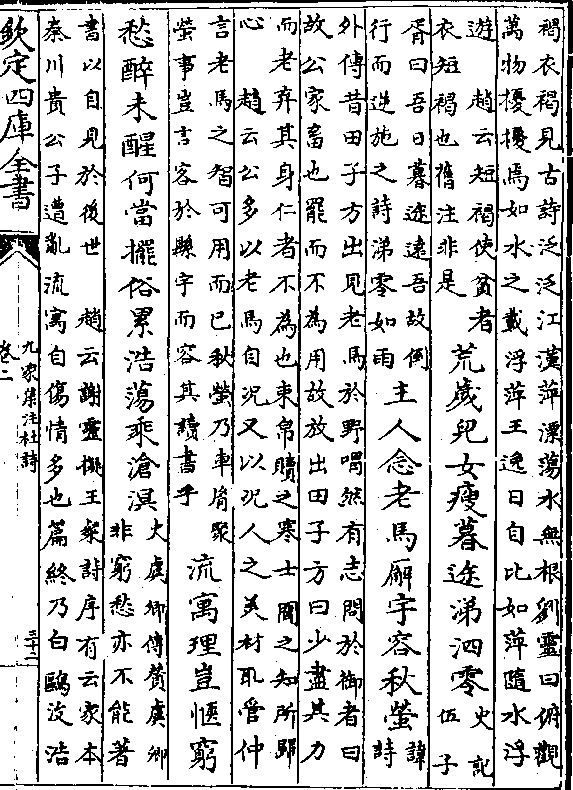 褐衣褐見古詩泛泛江漢萍漂蕩水無根劉靈曰俯觀
萬物擾擾焉如水之載浮萍王逸曰自比如萍隨水浮
遊　趙云短褐使貧者
衣短褐也舊注非是
荒歲兒女瘦暮途涕泗零
史記
伍子
胥曰吾日暮途遠吾故倒
行而逆施之詩涕零如雨
主人念老馬廨宇容秋螢
韓
詩
外傳昔田子方出見老馬於野喟然有志問於御者曰
故公家畜也罷而不為用故放出田子方曰少盡其力
而老弃其身仁者不為也束帛贖之寒士聞之知所歸
心　趙云公多以老馬自況又以況人之美材取管仲
言老馬之智可用而已秋螢乃車胤聚
螢事豈言客於縣宇而容其讀書乎
流寓理豈愜窮
愁醉未醒何當擺俗累浩蕩乘滄溟
太虞卿傳贊虞卿
非窮愁亦不能著
書以自見於後世　趙云謝靈擬王粲詩序有云家本
秦川貴公子遭亂流寓自傷情多也篇終乃白鷗沒浩
欽定四庫全書
九家集注杜詩
卷二
三十二